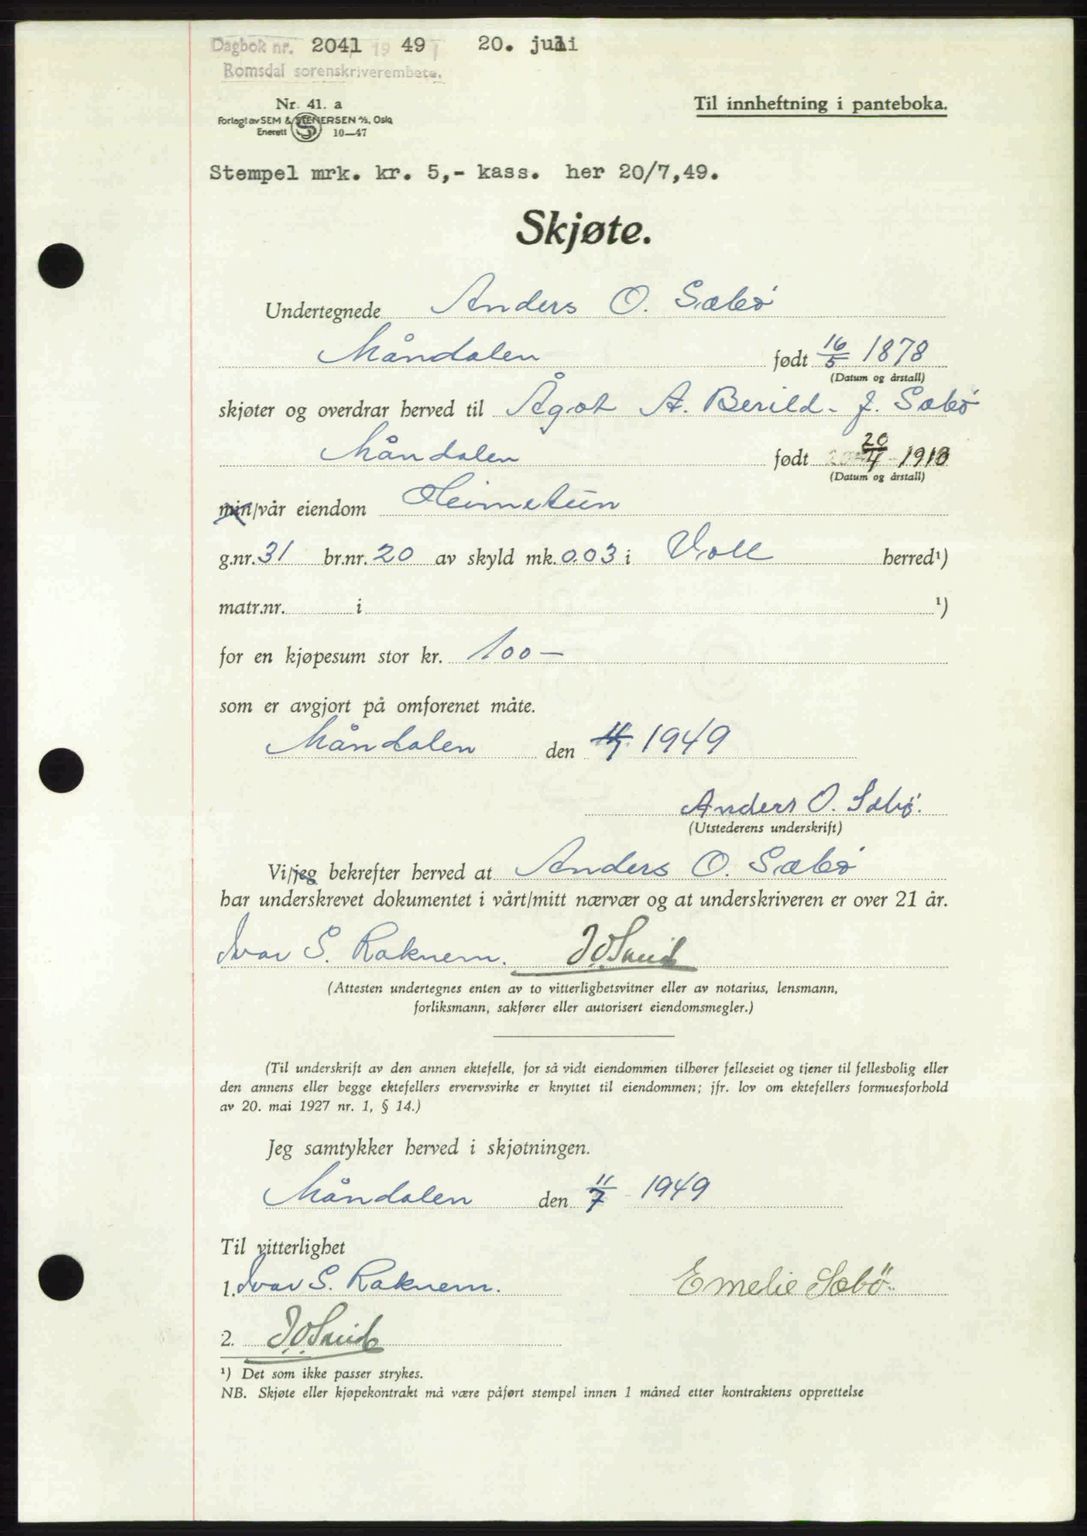 Dagbok nr. 2041 19 49 20. juli
Romsdal sorenskriverembete.
Nr. 41. a
Forlagt av SEM & STENERSEN A/S, Oslo
Enerett 10—47
Til innheftning i panteboka.
Stempel mrk. kr. 5,- kass. her 20/7,49.
Skjøte.
Undertegnede Anders O. Sæbø
Måndalen født 16/5 1878
(Datum og årstall)
skjøter og overdrar herved til Ågot A. Berild. f. Sæbø
Måndalen født 20/4 1918
(Datum og årstall)
min/vår eiendom Heimetun
g.nr. 31 br.nr. 20 av skyld mk. 0.03 i Voll herred¹)
matr.nr. i ¹)
for en kjøpesum stor kr. 100 —
som er avgjort på omforenet måte.
Måndalen den 11/7 1949
Anders O. Sæbø.
(Utstederens underskrift)
Vi/jeg bekrefter herved at Anders O. Sæbø
har underskrevet dokumentet i vårt/mitt nærvær og at underskriveren er over 21 år.
Ivar S. Raknem.
(Attesten undertegnes enten av to vitterlighetsvitner eller av notarius, lensmann,
forliksmann, sakfører eller autorisert eiendomsmegler.)
(Til underskrift av den annen ektefelle, for så vidt eiendommen tilhører felleseiet og tjener til fellesbolig eller
den annens eller begge ektefellers ervervsvirke er knyttet til eiendommen; jfr. lov om ektefellers formuesforhold
av 20. mai 1927 nr. 1, § 14.)
Jeg samtykker herved i skjøtningen.
Måndalen den 11/7 1949
Til vitterlighet
1. Ivar S. Raknem. Emelie Sæbø.
2.
¹) Det som ikke passer strykes.
NB. Skjøte eller kjøpekontrakt må være påført stempel innen 1 måned etter kontraktens opprettelse